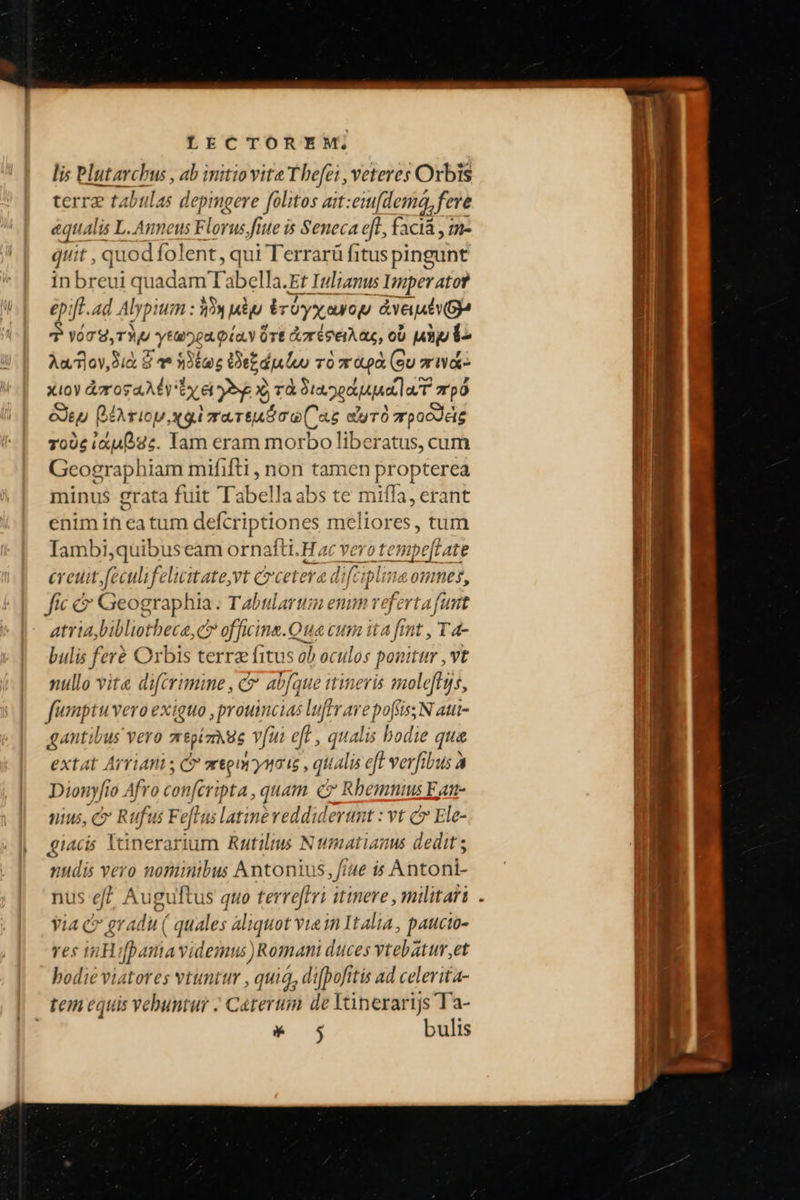 LECTOREM.
lis Plutarchus, ab initio vitæ Thesei, veteres Orbis
terræ tabulas depingere solitos ait: eiusdemq́, fere
æqualis L. Anneus Florus, siue is Seneca est, facià, in-
quit, quod solent, qui Terrarū situs pingunt
in breui quadam Tabella. Et Iulianus Imperator
epist. ad Alypium: ἤδη μὲν ἐτύγχανον ἀνειμένος
τ̃ νόσȣ, τὴν γεωγραφίαν ὅτε ἀπέστειλας, οὐ μὴν ἔ-
λατῖον, διὰ
κιον ἀποσταλέν· ἔχει γὰρ ϗ̀ τὰ διαγράμματα
βέλτιον, καὶ
τοὺς ἰάμβȣς. Iam eram morbo liberatus, cum
Geographiam misisti, non tamen propterea
minus grata fuit Tabella abs te missa, erant
enim in ea tum descriptiones meliores, tum
Iambi, quibus eam ornasti. Hac vero tempestate
creuit, seculi felicitate, vt & cetera disciplina omnes,
sic & Geographia. Tabularum enim referta sunt
atria, bibliotheca, & officina. Qua cum ita sint, Ta-
bulis ferè Orbis terræ situs ob oculos ponitur, vt
nullo vitæ discrimine, & absque itineris molestijs,
sumptu vero exiguo, prouincias lustrare possis; Naui-
gantibus vero περίπλȣς vsui est, qualis hodie qua
extat Arriani; & περιήγησις, qualis est versibus à
Dionysio Afro conscripta, quam & Rhemnius Fan-
nius, & Rufus Festus latinè reddiderunt: vt & Ele-
giacis Itinerarium Rutilius Numatianus dedit;
nudis vero nominibus Antonius, siue is Antoni-
nus est Augustus quo terrestri itinere, militari
via & gradu (quales aliquot via in Italia, paucio-
res in Hispania videmus) Romani duces vtebātur, et
hodie viatores vtuntur, quiq́, dispositis ad celerita-
tem equis vehuntur. Cæterum de Itinerarijs Ta-
* 5 bulis